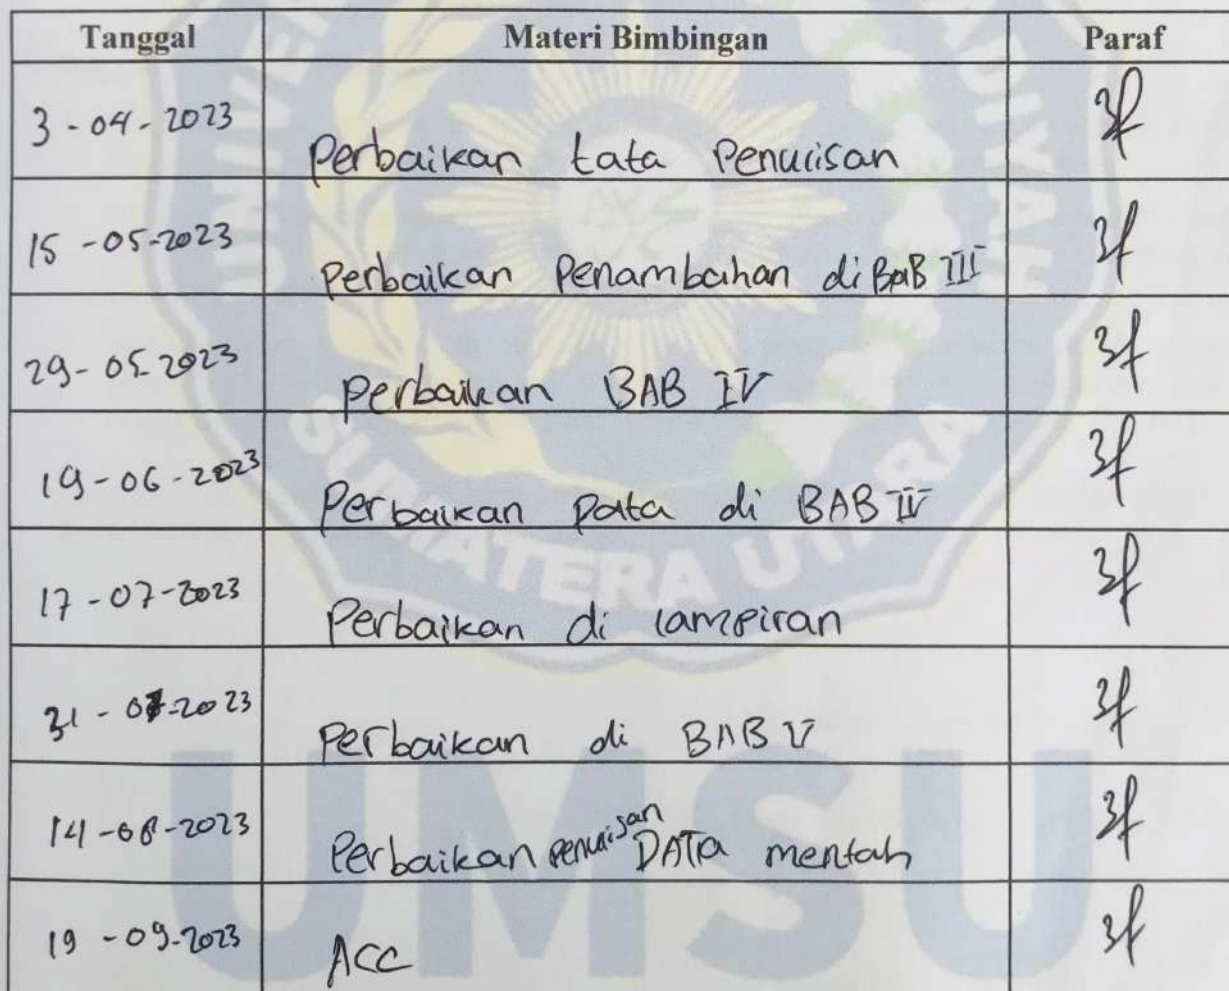 Tanggal Materi Bimbingan Paraf
3-04-2023 Perbaikan tata Penulisan
15-05-2023 Perbaikan Penambahan di BAB III
29-05-2023 Perbaikan BAB IV
19-06-2023 Perbaikan Data di BAB IV
17-07-2023 Perbaikan di lampiran
31-07-2023 Perbaikan di BAB V
14-08-2023 Perbaikan penulisan DATA mentah
19-09-2023 ACC
SUMATERA UTARA
UMSU